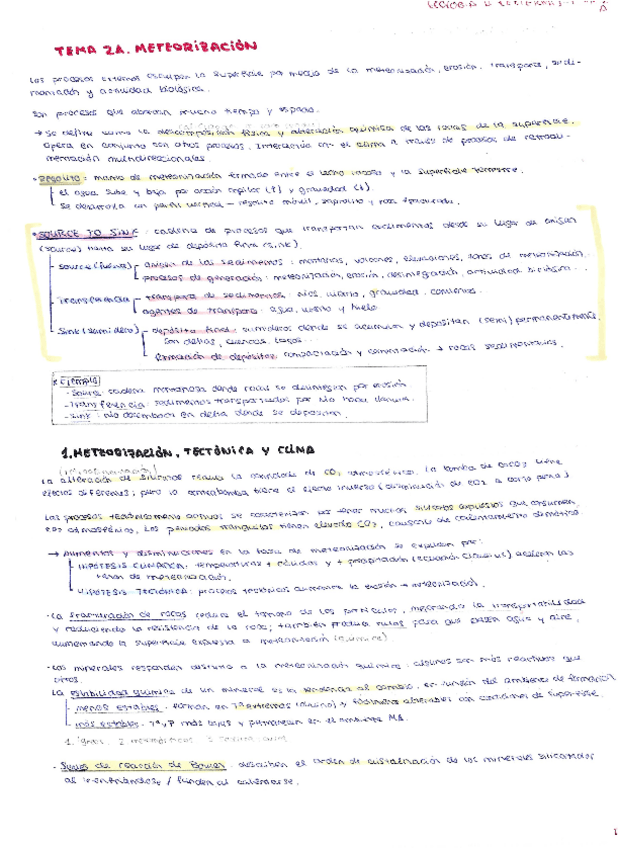 TEMA 2A. METEORIZACIÓN
Los procesos externos esculpen la superficie por medio de la meteorización, erosión, transporte, sedi-
mentación y actividad biológica.
Son procesos que abarcan mucho tiempo y espacio.
→ Se define como la descomposición física y alteración química de las rocas de la superficie.
Opera en conjunto con otros procesos. Interacciona con el clima a través de procesos de retroali-
mentación multidireccionales.
• REGOLITO: manto de meteorización formado entre el lecho rocoso y la superficie terrestre.
El agua sube y baja por acción capilar (↑) y gravedad (↓).
Se desarrolla un perfil vertical → regolito móvil, saprolito y roca fracturada.
• SOURCE TO SINK: cadena de procesos que transportan sedimentos desde su lugar de origen
(source) hasta su lugar de depósito final (sink).
Source (fuente) origen de los sedimentos: montañas, volcanes, elevaciones, zonas de meteorización
procesos de generación: meteorización, erosión, desintegración, actividad biótica...
Transferencia transporte de sedimentos: ríos, viento, gravedad, corrientes.
agentes de transporte: agua, viento y hielo
Sink (sumidero) depósito final: sumideros donde se acumulan y depositan (semi) permanentemente.
Son deltas, cuencas, lagos...
formación de depósitos: compactación y cementación → rocas sedimentarias.
* Ejemplo
- Source: cadena montañosa donde rocas se desintegran por erosión.
- Transferencia: sedimentos transportados por río hacia llanura.
- Sink: río desemboca en delta donde se depositan.
1. METEORIZACIÓN, TECTÓNICA Y CLIMA
La alteración de silicatos reduce la cantidad de CO₂ atmosférico. La bomba de CaCO₃ tiene
efectos diferentes; pero la contrabomba tiene el efecto inverso (disminución de CO2 a corto plazo)
Los procesos tectónicamente activos se caracterizan por tener muchos silicatos expuestos que consumen
CO₂ atmosférico. Los periodos tranquilos tienen elevado CO₂, causante de calentamiento climático
→ Aumentos y disminuciones en la tasa de meteorización se explican por:
HIPÓTESIS CLIMÁTICA: temperaturas + cálidas y + precipitación (ecuación Clausius) aceleran las
tasas de meteorización.
HIPÓTESIS TECTÓNICA: procesos tectónicos aumentan la erosión → meteorización.
- La fragmentación de rocas reduce el tamaño de las partículas, mejorando la transportabilidad
y reduciendo la resistencia de la roca; también produce rutas para que pasen agua y aire,
aumentando la superficie expuesta a meteorización (química).
- Los minerales responden distinto a la meteorización química: algunos son más reactivos que
otros.
La estabilidad química de un mineral es la tendencia al cambio, en función del ambiente de formación
menos estables: forman en Tª extremas (olivino) y fácilmente alterables con condiciones de superficie.
más estables: Tª y P más bajas y permanecen en el ambiente MA.
- Series de reacción de Bowen: describen el orden de cristalización de los minerales silicatados
al enfriándose / funden al calentarse.
1